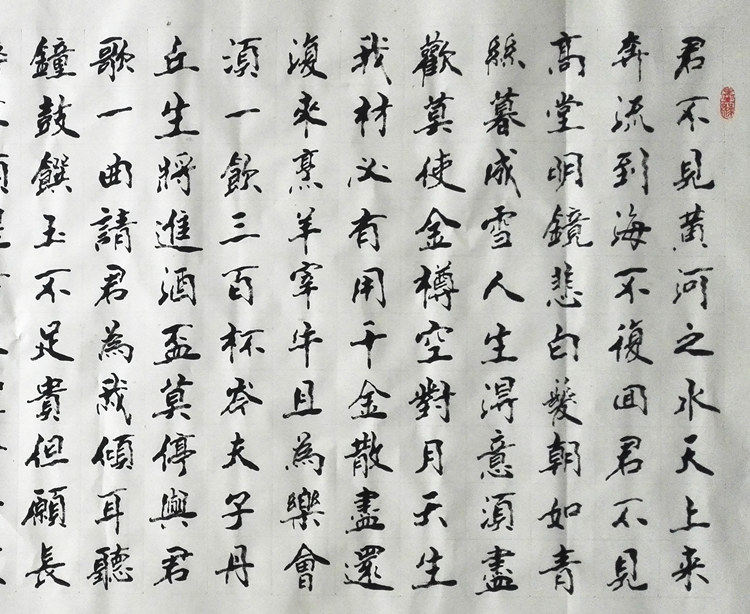 君不見黃河之水天上来
奔流到海不復回君不見
高堂明鏡悲白髮朝如青
絲暮成雪人生得意須盡
歡莫使金樽空對月天生
我材必有用千金散盡還
復來烹羊宰牛且為樂會
須一飲三百杯岑夫子丹
丘生將進酒盃莫停與君
歌一曲請君為我傾耳聽
鐘鼓饌玉不足貴但願長